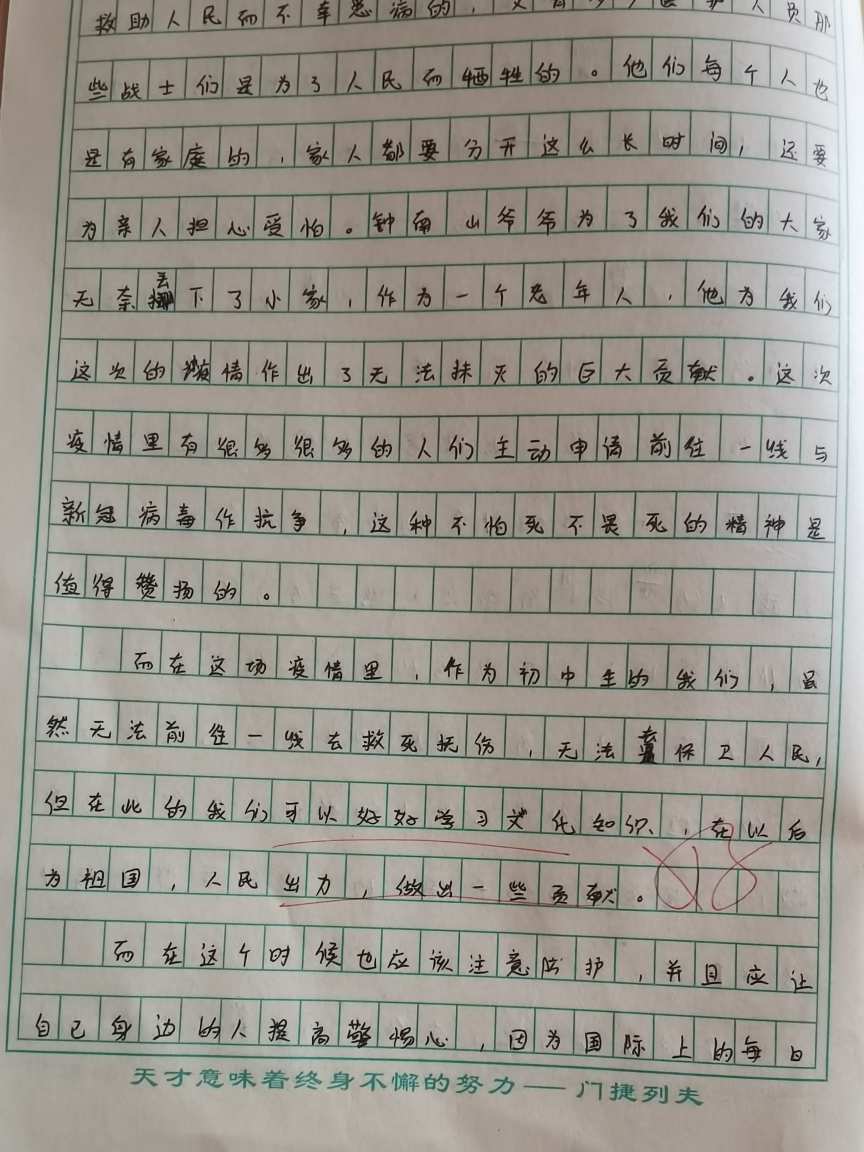 救助人民而不幸患病的，又有多少医护人员那
些战士们是为了人民而牺牲的。他们每个人也
是有家庭的，家人都要分开这么长时间，还要
为亲人担心受怕。钟南山爷爷为了我们的大家
无奈丢下了小家，作为一个老年人，他为我们
这次的疫情作出了无法抹灭的巨大贡献。这次
疫情里有很多很多的人们主动申请前往一线与
新冠病毒作抗争，这种不怕死不畏死的精神是
值得赞扬的。
而在这场疫情里，作为初中生的我们，虽
然无法前往一线去救死抚伤，无法去保卫人民，
但在此的我们可以好好学习文化知识，在以后
为祖国，人民出力，做出一些贡献。
而在这个时候也应该注意防护，并且应让
自己身边的人提高警惕心，因为国际上的每日
天才意味着终身不懈的努力——门捷列夫